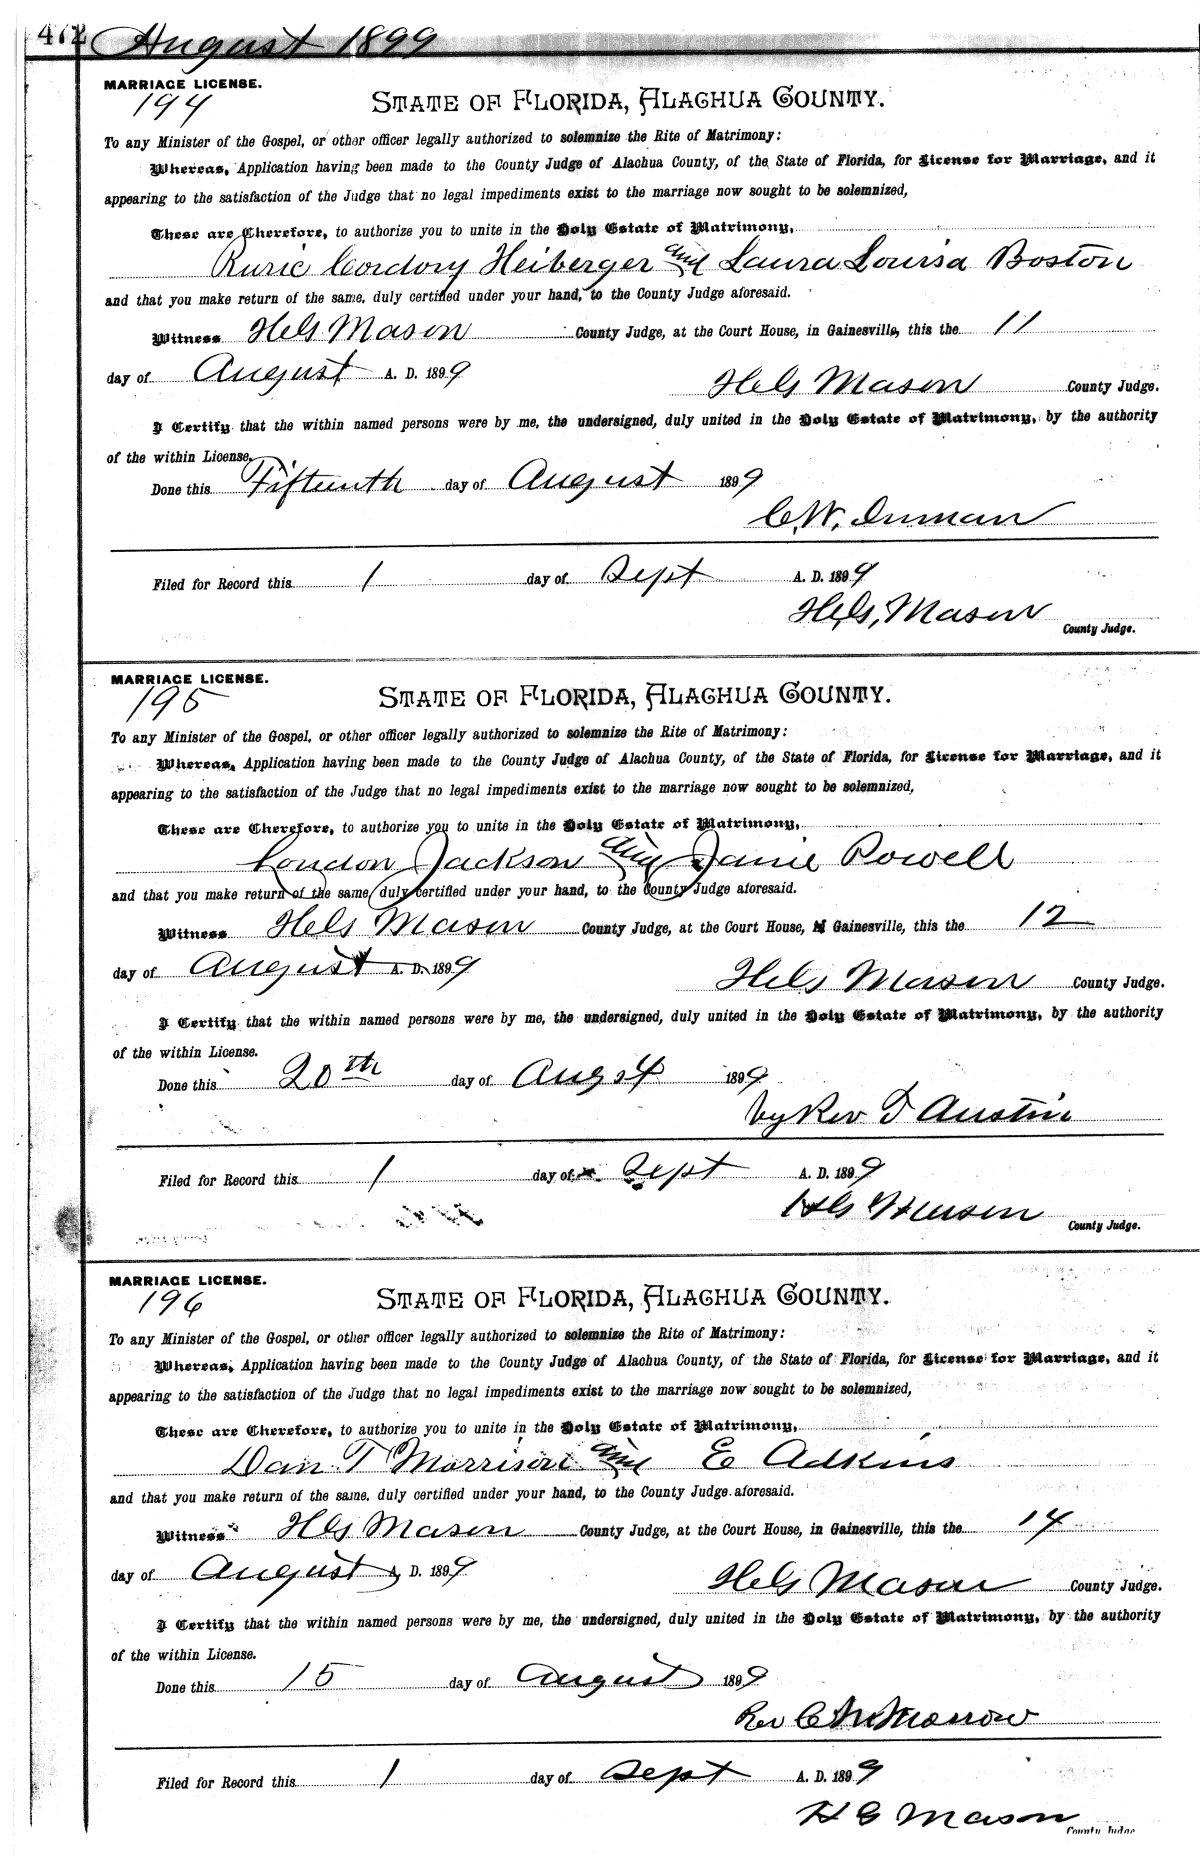 472 August 1899
MARRIAGE LICENSE.
194
STATE OF FLORIDA, ALACHUA COUNTY.
To any Minister of the Gospel, or other officer legally authorized to solemnize the Rite of Matrimony:
Whereas, Application having been made to the County Judge of Alachua County, of the State of Florida, for License for Marriage, and it
appearing to the satisfaction of the Judge that no legal impediments exist to the marriage now sought to be solemnized,
These are Therefore, to authorize you to unite in the Holy Estate of Matrimony,
Ruric Cordory Heiberger and Laura Louisa Boston
and that you make return of the same, duly certified under your hand, to the County Judge aforesaid.
Witness H G Mason County Judge, at the Court House, in Gainesville, this the 11
day of August A. D. 1899 H G Mason County Judge.
I Certify that the within named persons were by me, the undersigned, duly united in the Holy Estate of Matrimony, by the authority
of the within License.
Done this Fifteenth day of August 1899
C. W. Inman
Filed for Record this 1 day of Sept A. D. 1899
H. G. Mason
County Judge.
MARRIAGE LICENSE.
195
STATE OF FLORIDA, ALACHUA COUNTY.
To any Minister of the Gospel, or other officer legally authorized to solemnize the Rite of Matrimony:
Whereas, Application having been made to the County Judge of Alachua County, of the State of Florida, for License for Marriage, and it
appearing to the satisfaction of the Judge that no legal impediments exist to the marriage now sought to be solemnized,
These are Therefore, to authorize you to unite in the Holy Estate of Matrimony,
London Jackson and Janie Powell
and that you make return of the same, duly certified under your hand, to the County Judge aforesaid.
Witness H G Mason County Judge, at the Court House, in Gainesville, this the 12
day of August A. D. 1899 H G Mason County Judge.
I Certify that the within named persons were by me, the undersigned, duly united in the Holy Estate of Matrimony, by the authority
of the within License.
Done this 20th day of Augst 1899
by Rev T Austin
Filed for Record this 1 day of Sept A. D. 1899
H G Mason
County Judge.
MARRIAGE LICENSE.
196
STATE OF FLORIDA, ALACHUA COUNTY.
To any Minister of the Gospel, or other officer legally authorized to solemnize the Rite of Matrimony:
Whereas, Application having been made to the County Judge of Alachua County, of the State of Florida, for License for Marriage, and it
appearing to the satisfaction of the Judge that no legal impediments exist to the marriage now sought to be solemnized,
These are Therefore, to authorize you to unite in the Holy Estate of Matrimony,
Dan T Morrison and E Adkins
and that you make return of the same, duly certified under your hand, to the County Judge aforesaid.
Witness H G Mason County Judge, at the Court House, in Gainesville, this the 14
day of August A. D. 1899 H G Mason County Judge.
I Certify that the within named persons were by me, the undersigned, duly united in the Holy Estate of Matrimony, by the authority
of the within License.
Done this 15 day of August 1899
Rev C Morrow
Filed for Record this 1 day of Sept A. D. 1899
H G Mason
County Judge